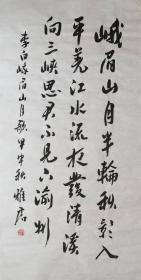 峨眉山月半輪秋影入
平羌江水流夜發清溪
向三峽思君不見下渝州
李白峨眉山月歌甲午秋雅